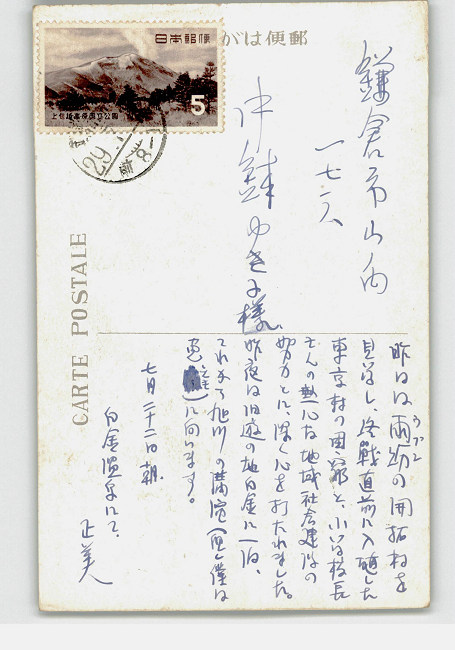 郵便はがき
日本郵便
5
上信越高原国立公園
29
8-1
CARTE POSTALE
鎌倉市山ノ内
一七二八
沖鉢ゆき子様
昨日は雨紛の開拓村を
見学し、終戦直前に入植した
東京村の困窮と、小さな校長
さんの熱心な地域社会建設の
努力とに、深く心を打たれました。
昨夜は旧遊の地白金に一泊、
これから旭川の講演(但し僕は
に向います。
七月二十二日朝
白金温泉にて、
正美